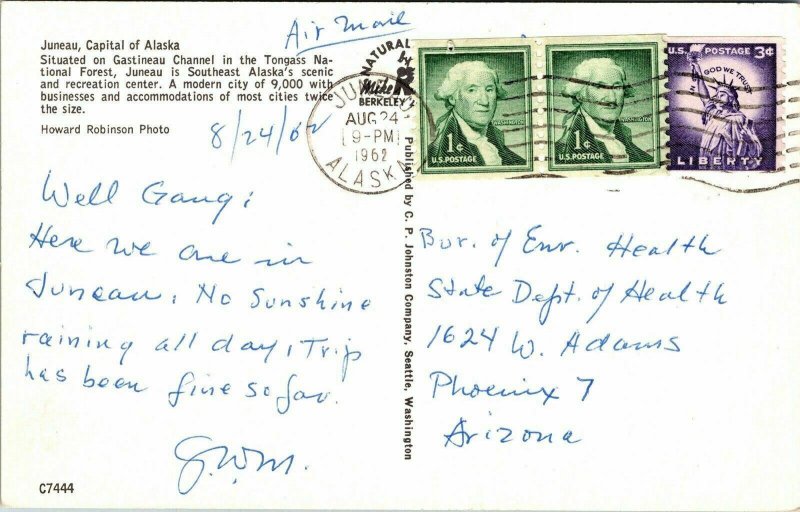 Air Mail
Juneau, Capital of Alaska
Situated on Gastineau Channel in the Tongass Na-
tional Forest, Juneau is Southeast Alaska's scenic
and recreation center. A modern city of 9,000 with
businesses and accommodations of most cities twice
the size.
Howard Robinson Photo
8/24/62
Well Gang;
Here we are in
Juneau. No Sunshine
raining all day, Trip
has been fine so far.
G.W.M.
C7444
NATURAL
Mike
BERKELEY
JUNEAU
AUG 24
9-PM
1962
ALASKA
Published by C. P. Johnston Company, Seattle, Washington
1¢
WASHINGTON
U.S. POSTAGE
1¢
WASHINGTON
U.S. POSTAGE
U.S. POSTAGE 3¢
IN GOD WE TRUST
LIBERTY
Bur. of Env. Health
State Dept. of Health
1624 W. Adams
Phoenix 7
Arizona